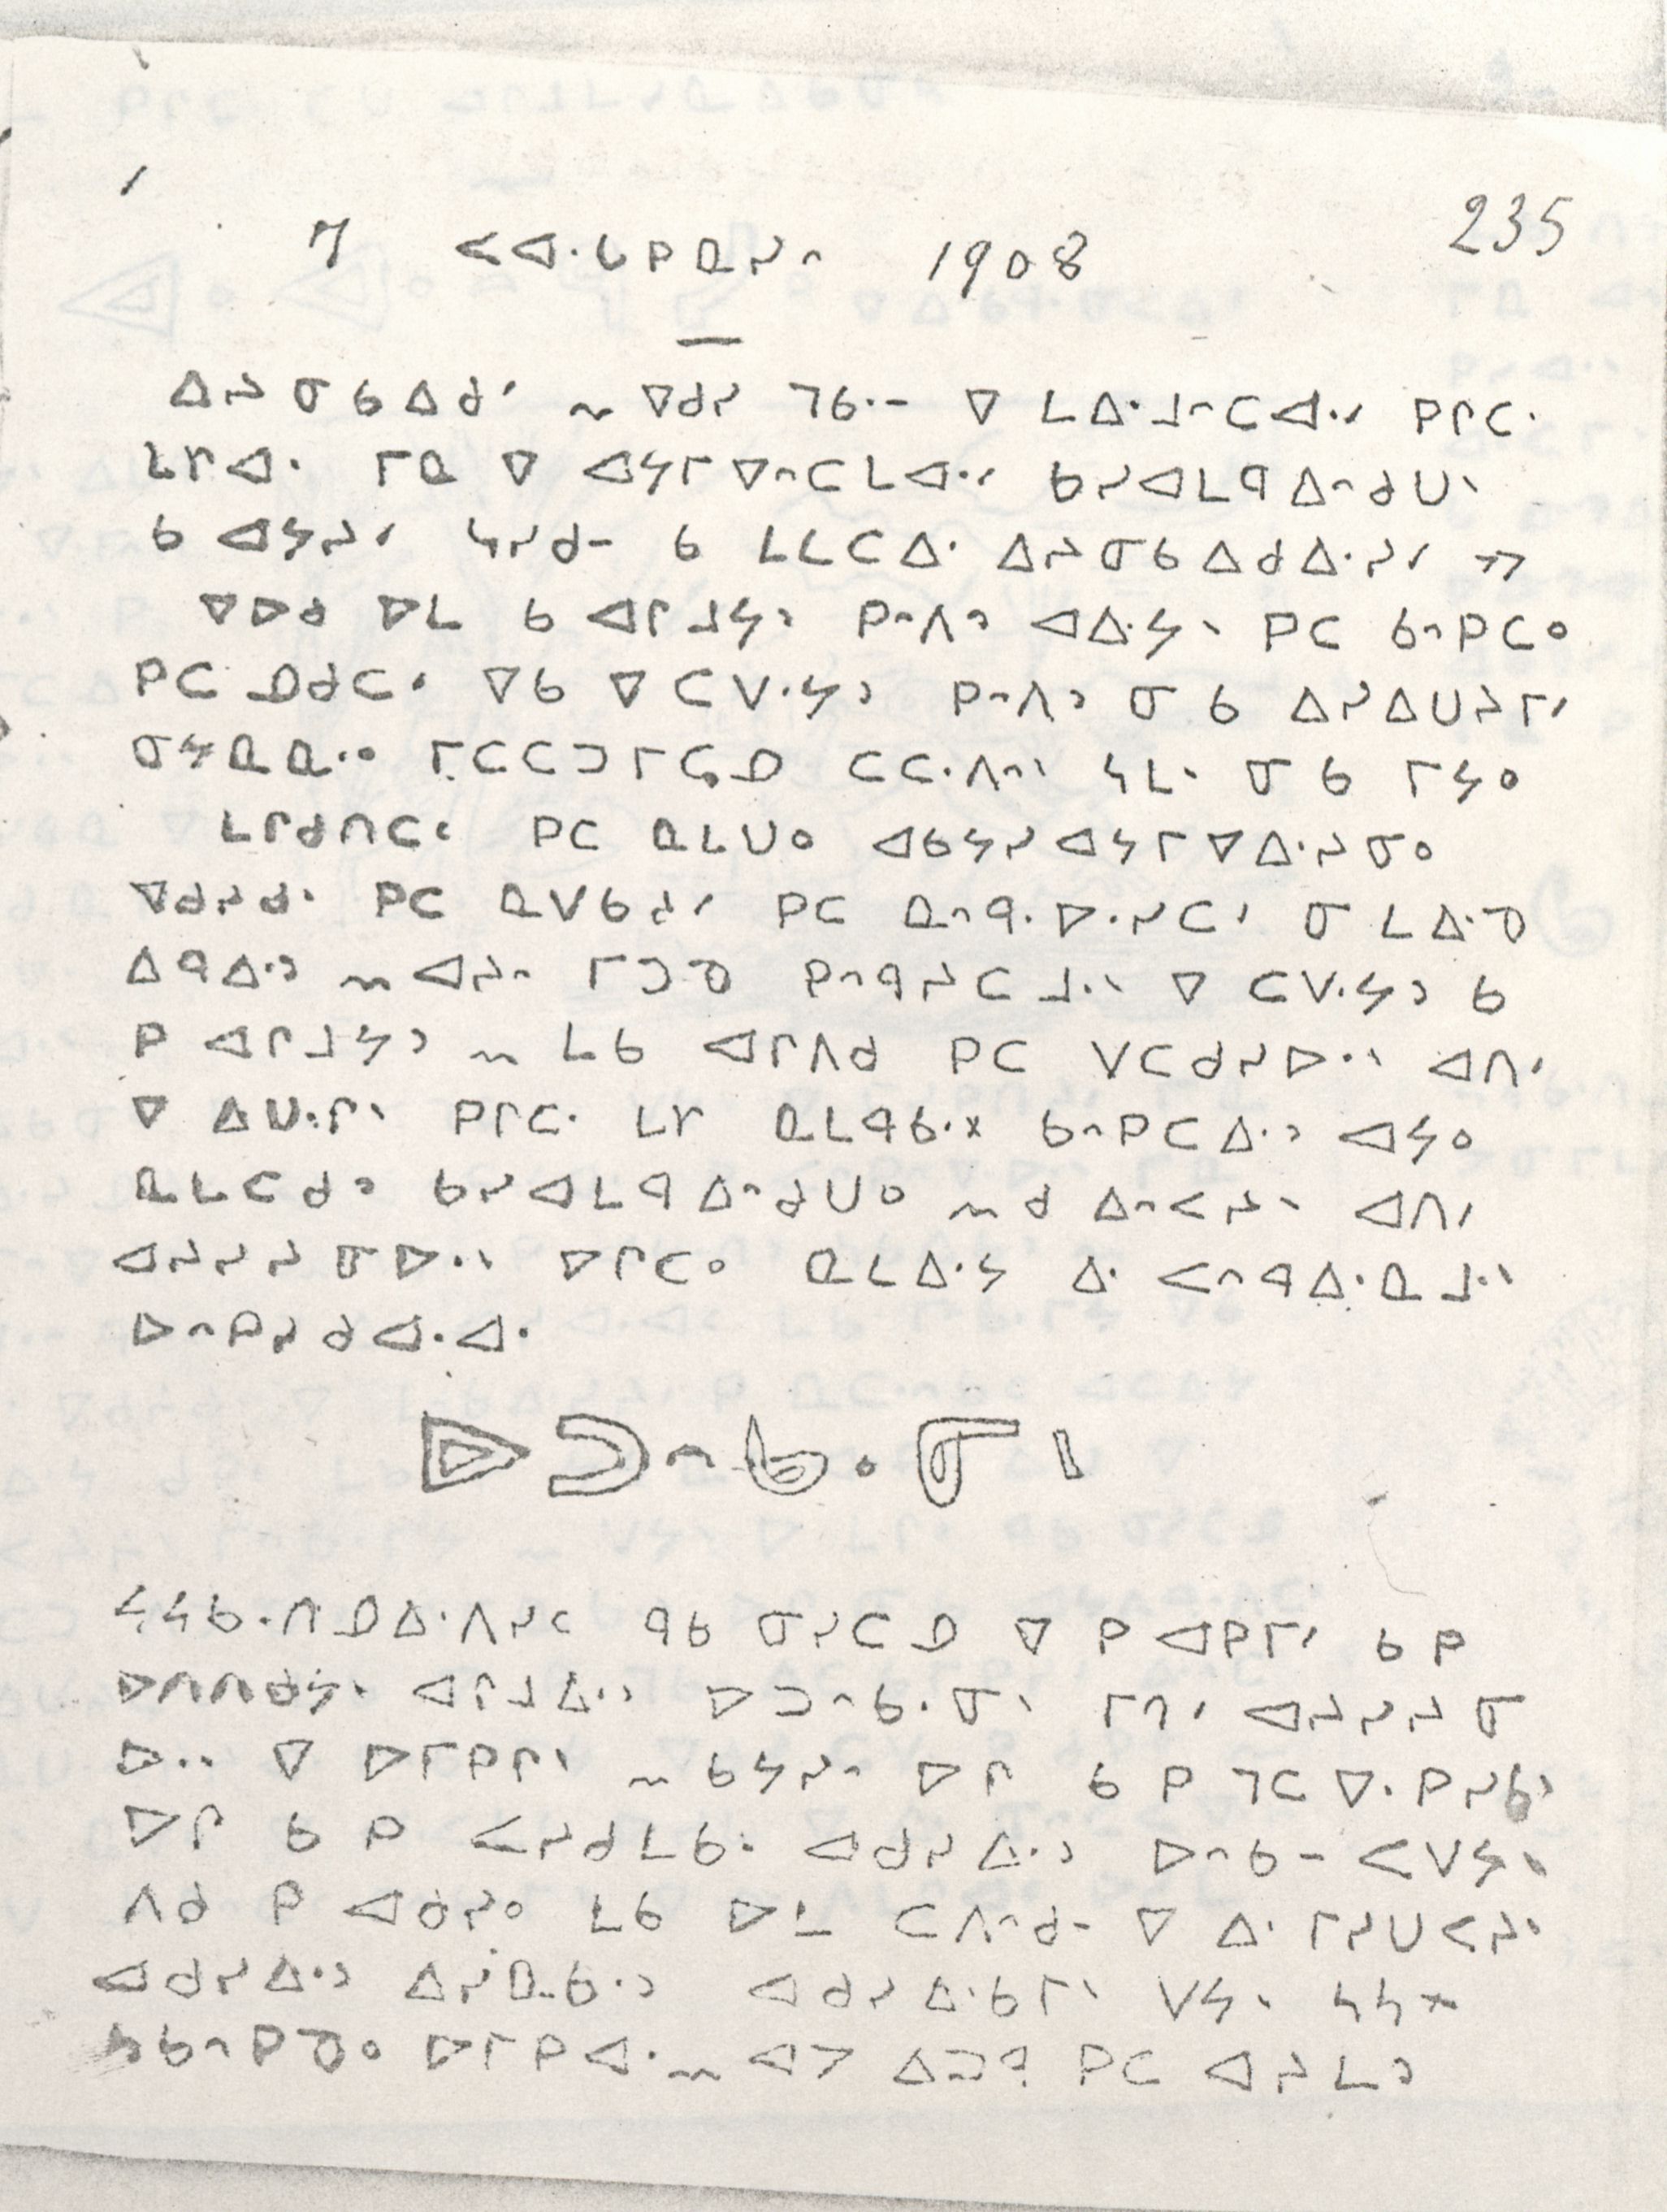 235
7 ᐸᐊᐧᒐᑭᓇᓯᐢ 1908
ᐃᓯ ᓂᑲᐃᑯᐟ ~ ᐁᑯᓯ ᒣᑲᐧᐨ ᐁ ᒪᐃᐧᒧᐢᑕᐊᐧᐟ ᑭᒋᑕᐧ
ᒪᒋᐊᐧ ᒥᓇ ᐁ ᐊᔭᒥᐁᐢᑕᒪᐊᐧᐟ ᑲᓯᐊᒪᑫ ᐃᐢᑯᑌᐠ
ᑲ ᐊᔭᓯᐟ ᓴᓯᑯᐨ ᑲ ᒪᒪᑕᐃᐧ ᐃᓯᓂᑲᐃᑯᐃᐧᓯᐟ
ᐁᐅᑯ ᐅᒪ ᑲ ᐊᒋᒧᔭᐣ ᑭᐢᐱᐣ ᐊᐃᐧᔭᐠ ᑭᑕ ᑲᐢᑭᑕᐤ
ᑭᑕ ᓄᑯᑕᐟ ᐁᑲ ᐁ ᑕᐯᐧᔭᐣ ᑭᐢᐱᐣ ᓂ ᑲ ᐃᓯᐃᑌᓯᒥᐟ
ᓂᔭᓇᓇᐧᐤ ᒥᑕᑕᑐᒥᑕᓄ ᑕᑕᐧᐱᐢᐠ ᓴᒪᐠ ᓂ ᑲ ᒥᔭᐤ
ᒪᒋᑯᑎᑕᐟ ᑭᑕ ᓇᒪᑌᐤ ᐊᑲᔭᓯᐊᔭᒥᐁᐃᐧᓯᓂᐤ
ᐁᑯᓯᑯᐠ ᑭᑕ ᓇᐯᑲᓱᐟ ᑭᑕ ᓇᐢᑫᐧᐅᐧᓯᑕᐟ ᓂ ᒪᐃᐧᓀ
ᐃᑫᐃᐧᐣ ~ ᐊᓯᐢ ᒥᑐᓀ ᑭᐢᑫᓯᑕᒧᐧᐠ ᐁ ᑕᐯᐧᔭᐣ ᑲ
ᑭ ᐊᒋᒧᔭᐣ ~ ᒪᑲ ᐊᒋᐱᑯ ᑭᑕ ᐯᑕᑯᓯᐅᐧᐠ ᐊᑎᐟ
ᐁ ᐃᑌᐧᒋᐠ ᑭᒋᑕᐧ ᒪᒋ ᓇᒪᑫᑲᐧᕽ ᑲᐢᑭᑕᐃᐧᐣ ᐊᔭᐤ
ᓇᒪᑕᑯᐣ ᑲᓯᐊᒪᑫ ᐃᐢᑯᑌᐤ ~ ᑯ ᐃᐢᐸᓯᐠ ᐊᑎᐟ
ᐊᓯᓯᓂᐅᐧᐠ ᐅᒋᑕᐤ ᓇᒪᐃᐧᔭ ᐃᐧ ᐸᐢᑫᐃᐧᓇᒧᐧᐠ
ᐅᐢᑭᓯᑯᐊᐧᐊᐧ
ᐅᑐᐢᑲᐧᓂᐠ
ᔭᔭᑲᐧᑎᓄᐃᐧᐱᓯᑦ ᑫᑲ ᓂᓯᑕᓄ ᐁ ᑭ ᐊᑭᒥᐟ ᑲ ᑭ
ᐅᑎᑎᑯᔭᐠ ᐊᒋᒧᐃᐧᐣ ᐅᑐᐢᑲᐧᓂᐠ ᒥᑎᐟ ᐊᓯᓯᓯᓂ
ᐅᐧᐠ ᐁ ᐅᒥᑭᒋᐠ ~ ᑲᔭᓯᐢ ᐅᒋ ᑲ ᑭ ᒣᑕᐁᐧᑭᓯᑲᐣ
ᐅᒋ ᑲ ᑭ ᐸᓯᑯᒪᑲᐠ ᐊᑯᓯᐃᐧᐣ ᐅᐢᑲᐨ ᐸᐯᔭᐠ
ᐱᑯ ᑭ ᐊᑯᓯᐤ ᒪᑲ ᐅᒪ ᑕᐱᐢᑯᐨ ᐁ ᐃᐧ ᒥᓯᑌᐸᓯᐠ
ᐊᑯᓯᐃᐧᐣ ᐃᓯᓇᑲᐧᐣ ᐊᑯᓯᐃᐧᑲᒥᐠ ᐯᔭᐠ ᓴᓴᕽ
ᓴᑲᐢᑭᓀᐤ ᐅᒥᑭᐊᐧ ~ ᐊᐳ ᐃᑐᑫ ᑭᑕ ᐊᓯᒪᐣ